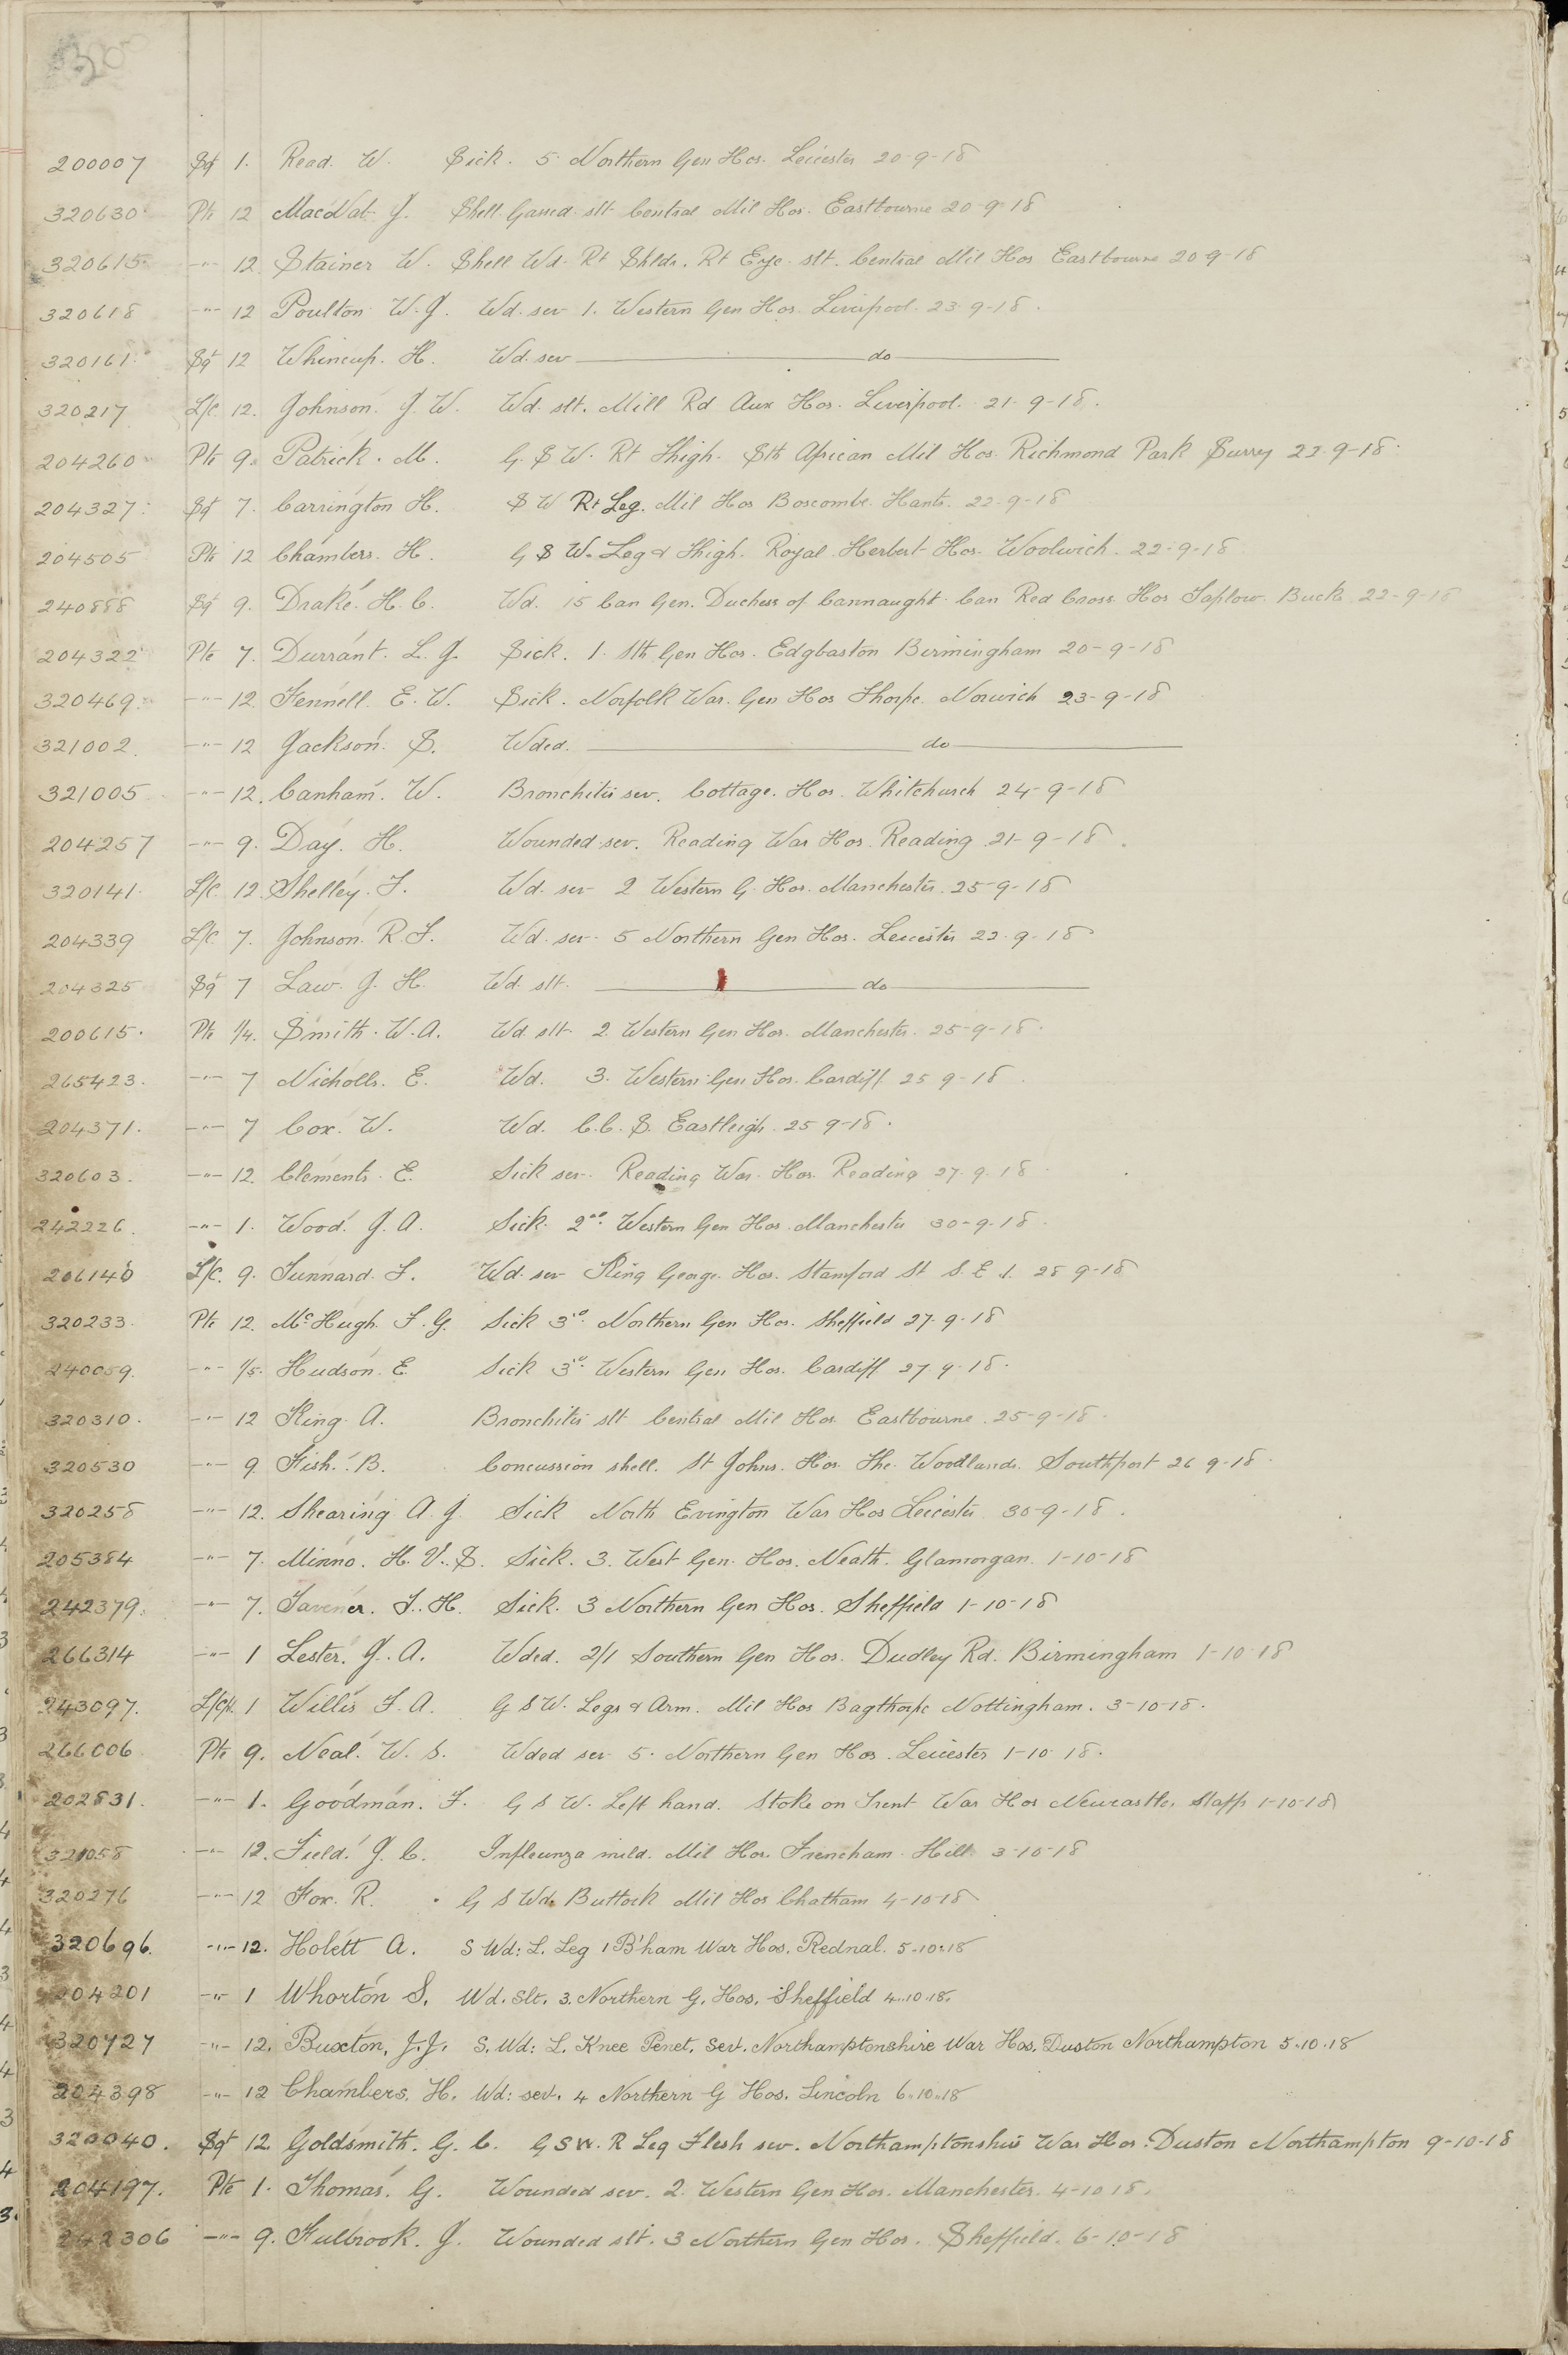 200007 Sgt 1. Read. W. Sick. 5 Northern Gen Hos. Leicester 20-9-18
320630 Pte 12 MacNab. J. Shell Gassed slt Central Mil Hos. Eastbourne 20-9-18
320615 -"- 12. Stainer W. Shell Wd. Rt Shldr. Rt Eye. slt. Central Mil Hos Eastbourne 20-9-18
320618 -"- 12 Poulton W.J. Wd. sev 1. Western Gen Hos. Liverpool. 23-9-18.
320161 Sgt 12 Whincup. H. Wd. sev — do —
320217 L/c. 12. Johnson. J.W. Wd. slt. Mill Rd Aux Hos. Liverpool. 21-9-18.
204260 Pte 9. Patrick. M. G.S.W. Rt Thigh. Sth African Mil Hos. Richmond Park Surry 22-9-18.
204327 Sgt 7. Carrington H. S W Rt Leg. Mil Hos Boscombe. Hants. 22-9-18
204505 Pte 12 Chambers. H. G S W. Leg & Thigh. Royal Herbert Hos. Woolwich. 22-9-18
240888 Sgt 9. Drake. H.C. Wd. 15 Can Gen. Duchess of Cannaught. Can Red Cross. Hos Taplow. Bucks 22-9-18
204322 Pte 7. Durrant. L.J. Sick. 1. Sth Gen Hos. Edgbaston Birmingham 20-9-18
320469 -"- 12. Fennell. E.W. Sick. Norfolk War. Gen Hos Thorpe. Norwich 23-9-18
321002. -"- 12 Jackson. S. Wded. — do —
321005 -"- 12. Canham. W. Bronchitis sev. Cottage. Hos. Whitchurch 24-9-18
204257 -"- 9. Day. H. Wounded sev. Reading War Hos. Reading 21-9-18.
320141. L/c. 12. Shelley. F. Wd. sev 2 Western G. Hos. Manchester. 25-9-18
204339 L/c. 7. Johnson. R.F. Wd. sev. 5 Northern Gen Hos. Leicester 22-9-18
204325 Sgt 7 Law. J. H. Wd. slt. — do —
200615. Pte 1/4. Smith. W.A. Wd slt 2. Western Gen Hos. Manchester. 25-9-18.
265423. -"- 7 Nicholls. E. Wd. 3. Western Gen Hos. Cardiff 25 9-18.
204371. -"- 7 Cox. W. Wd. C.C.S. Eastleigh. 25 9-18.
320603. -"- 12. Clements. E. Sick sev. Reading War. Hos. Reading 27. 9. 18
242226. -"- 1. Wood. J.A. Sick. 2nd. Western Gen Hos. Manchester 30-9-18.
206140 L/c. 9. Tunnard. F. Wd. sev King George. Hos. Stamford St S.E 1. 28 9-18
320233. Pte 12. McHugh. F.G. Sick 3rd. Northern Gen Hos. Sheffield 27. 9-18
240059. -"- 1/5. Hudson. E. Sick 3rd. Western Gen Hos. Cardiff 27 9-18.
320310. -"- 12 King. A. Bronchitis slt Central Mil Hos. Eastbourne. 25-9-18.
320530 -"- 9. Fish. B. Concussion shell. St Johns. Hos. The Woodlands. Southport 26 9-18.
320258 -"- 12. Shearing A.J. Sick North Evington War Hos Leicester 30-9-18.
205384 -"- 7. Minno. H.V.S. Sick. 3. West Gen. Hos. Neath. Glamorgan. 1-10-18
242379. -"- 7. Tavener. F.H. Sick. 3 Northern Gen Hos. Sheffield 1-10-18
266314 -"- 1 Lester. J.A. Wded. 2/1 Southern Gen Hos. Dudley Rd. Birmingham 1-10-18
243097. L/Cpl. 1 Willis F.A. G S W. Legs & Arm. Mil Hos Bagthorpe Nottingham. 3-10-18.
266006 Pte 9. Neal. W. S. Wded sev 5. Northern Gen Hos. Leicester 1-10-18.
202831. -"- 1. Goodman. F. G S W. Left hand. Stoke on Trent War Hos Newcastle. Staffs 1-10-18
321058 -"- 12. Field. J.C. Infleunza mild. Mil Hos. Frencham Hill 3-10-18
320276 -"- 12 Fox. R. G S Wd. Buttock Mil Hos Chatham 4-10-18
320696. -"- 12. Holett A. S Wd: L. Leg 1 B'ham War Hos. Rednal. 5-10-18
204201 -"- 1 Whorton S. Wd. Slt. 3. Northern G. Hos. Sheffield 4.10.18.
320727 -"- 12. Buxton, J.J. S. Wd: L. Knee Penet. Sev. Northamptonshire War Hos. Duston Northampton 5.10.18
204398 -"- 12 Chambers. H. Wd: sev. 4 Northern G Hos. Lincoln 6.10.18
320040. Sgt 12 Goldsmith. G. C. G S W. R Leg Flesh sev. Northamptonshire War Hos. Duston Northampton 9-10-18
204197. Pte 1. Thomas. G. Wounded sev. 2. Western Gen Hos. Manchester. 4-10 18.
242306 -"- 9. Fulbrook. J. Wounded slt. 3 Northern Gen Hos. Sheffield. 6-10-18